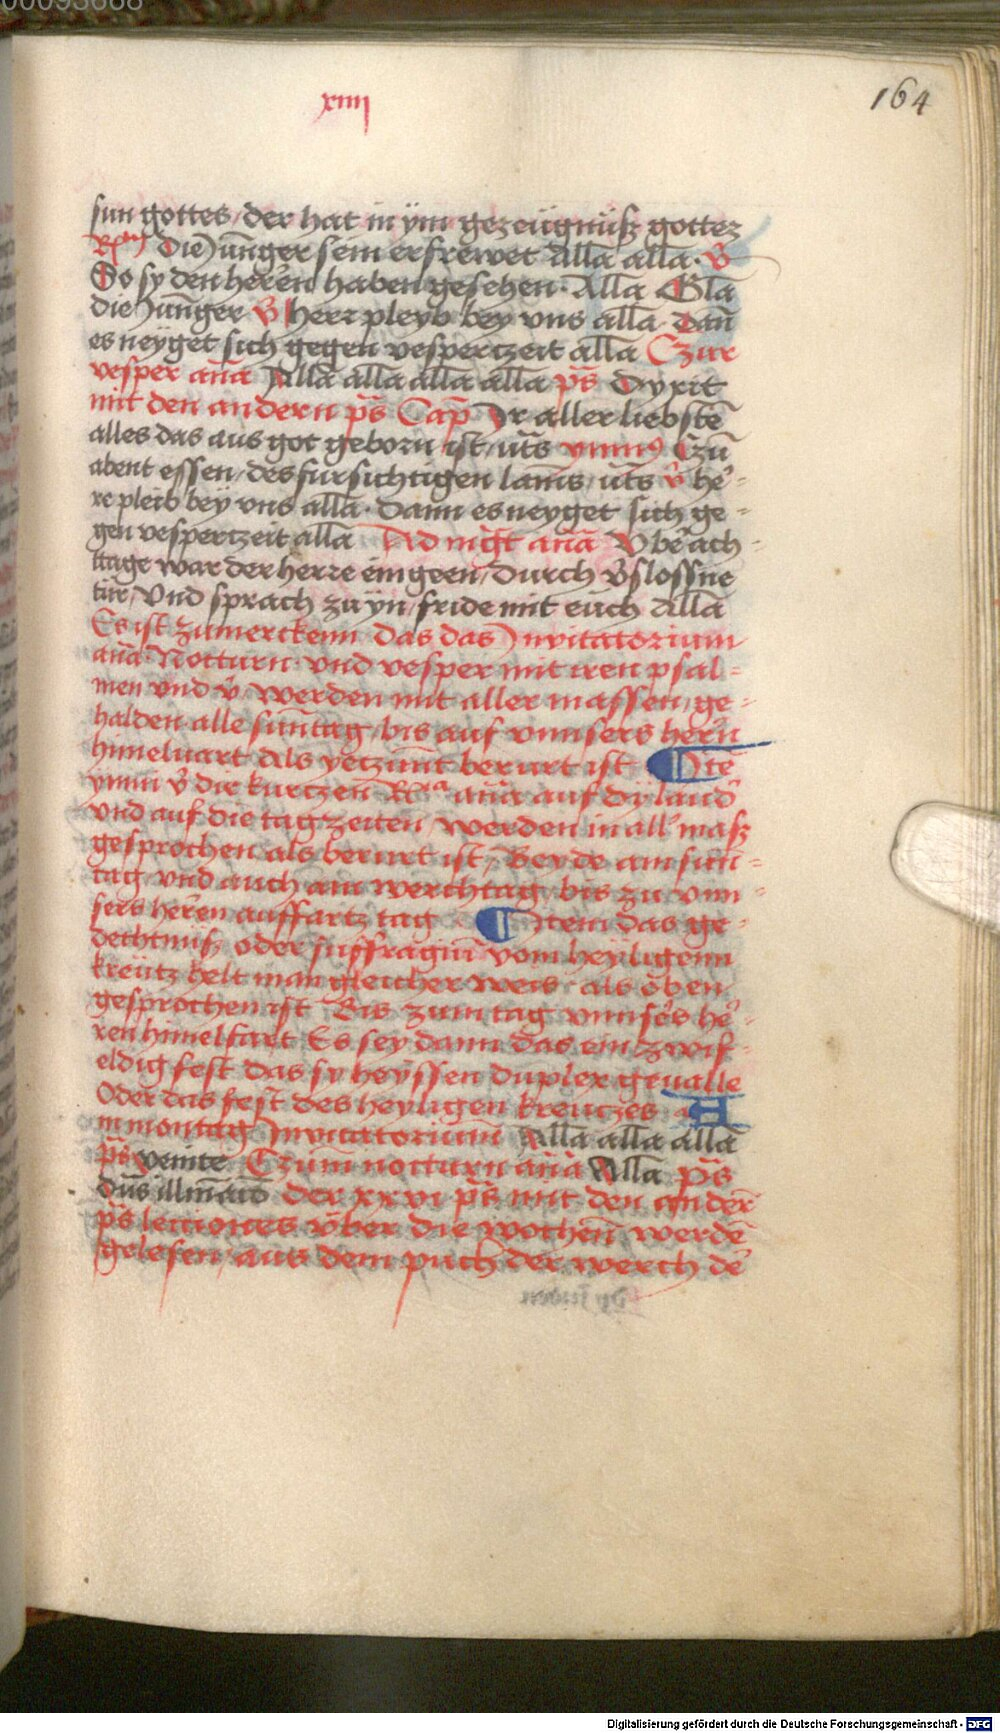 00093668
xiiij
164
sun gottes / der hat in ym gezeügnüsz gottez
Rspm Die Jünger sein erfrewet Alla alla . V̄
Do sy den herēn haben gesehen . Alla Gla
die Jünger V̄ herr pleyb bey vns alla . Dan̄
es neyget sich gegen vesperczeit alla Czur
vesper an̄a Alla alla alla alla ps̄ Dyxit
mit den andern ps̄ Cap̄ Ir aller liebstē
alles das aus got geborn ist / vt̄s ymnus Czū
abent essen / des fursichtigen lams / vt̄s v̄ he-
re pleib bey vns alla . Dann es neyget sich ge-
gen vesperczeit alla Ad mḡt an̄a Vber ach-
ttage war der herre ein geen / durch v̄slossne
tür / Vnd sprach zu yn / fride mit eüch Alla
Es ist zumerckenn das das Jnvitatorium
an̄a . Notturn . vnd vesper mit iren psal-
men vnd v̄ / werden mit aller massen / ge-
halden alle suntag / bis auf vnnsers hern̄
himeluart Als yeczunt berurt ist ¶ Jtē
ymni v̄ die kurczen R̄ia an̄a auf dy laud̄
vnd auf die tagzeiten / werden in all' masz
gesprochen als berurt ist / Beyde am sun-
tag vnd auch am werchtag / bis zu vnn-
sers herēn auffartz tag ¶ Jtem das ge-
dechtnüsz oder suffragiū vom heyligenn
kreütz helt man gleicher weis . als oben
gesprochen ist Bis zum tag vnnsers he-
ren himelfart Es sey dann das ein zwif-
eldig fest das sy heyssen duplex geualle
Oder das fest des heyligen kreuczes A
m montag Jnvitatorium Alla alla alla
ps̄ venite Czum notturn an̄a Alla ps̄
dn̄s illm̄acō der xxvi ps̄ mit den andern̄
ps̄ lectiones vber die wochen werdē
gelesen / aus dem puch der werch de'
Digitalisierung gefördert durch die Deutsche Forschungsgemeinschaft - DFG